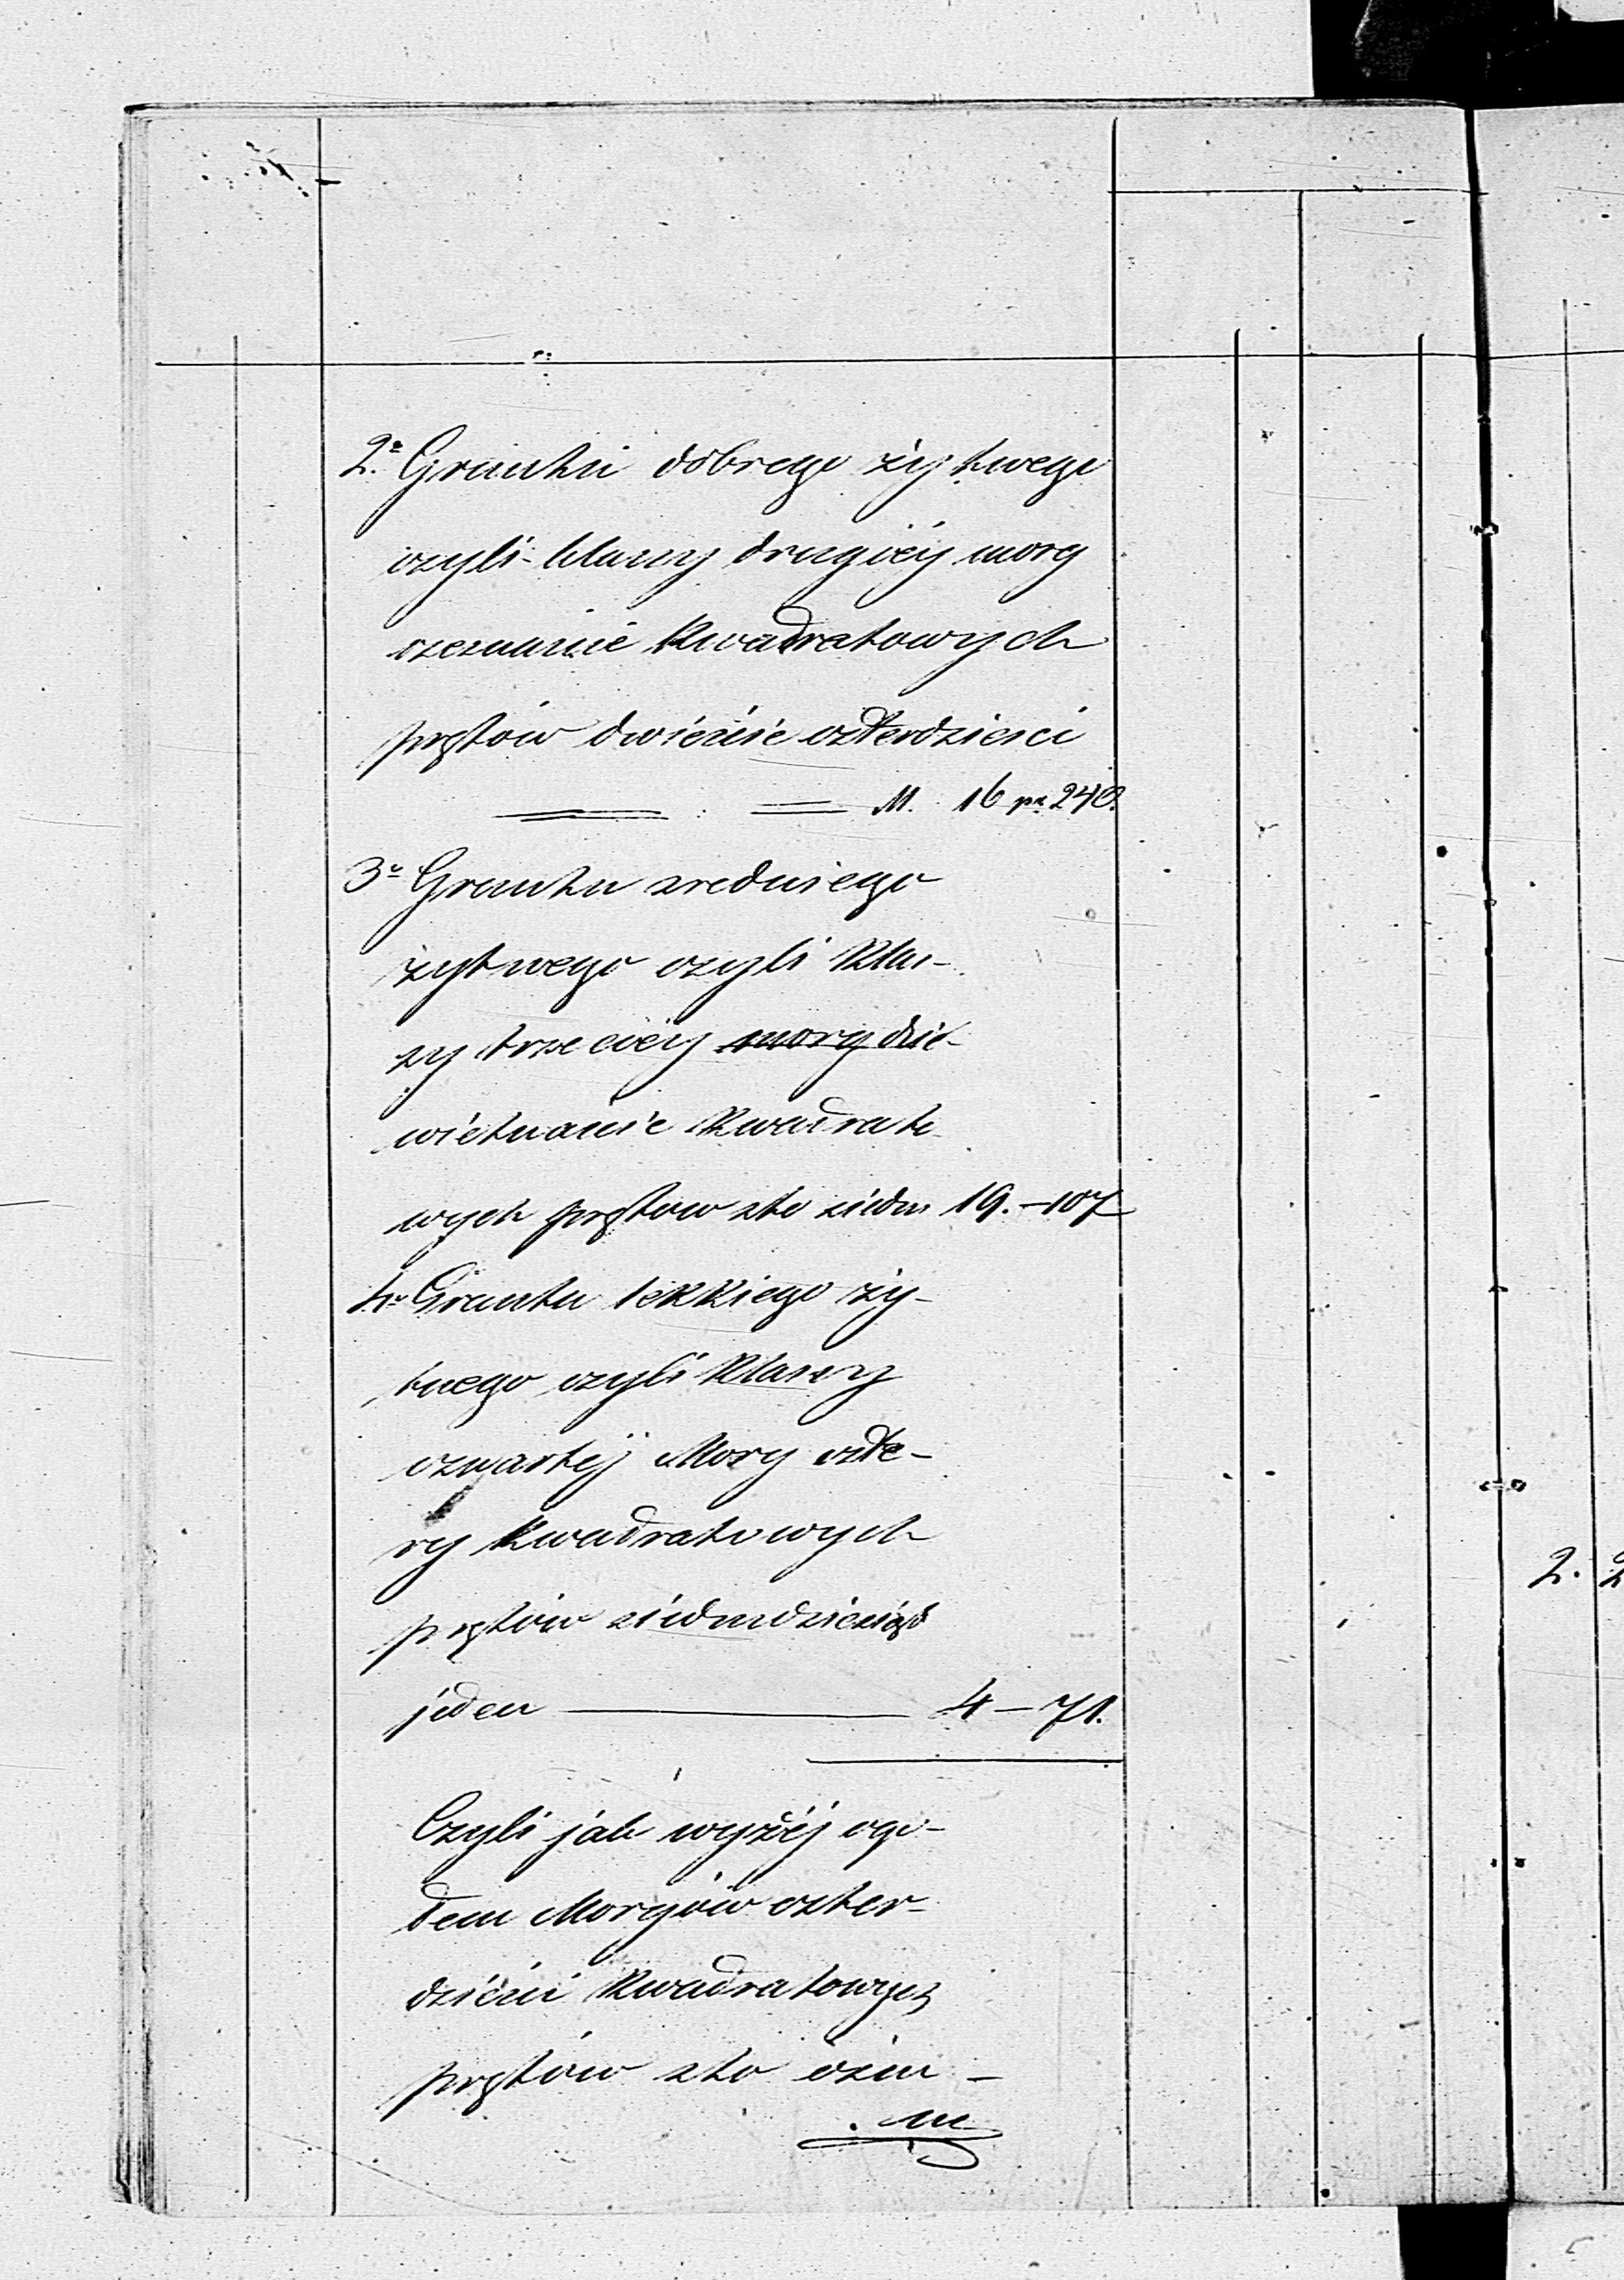 2e Gruntu dobrego żytnego
czyli klassy drugiéj morg
szesnaście kwadratowych
prętów dwieście czterdzieści
M. 16 pr. 240.
3o Gruntu sredniego
żytnego czyli klas-
sy trzeciéj morg dzie-
wietnaście kwadrato-
wych prętow sto siedm 19.-107
4o Gruntu lekkiego ży-
tnego czyli klassy
czwartéj Morg czte-
ry kwadratowych
prętów siedmdziesiąt
jeden 4-71.
Czyli jak wyżéj ogo-
łem Morgów czter-
dzieści kwadratowych
prętów sto ośm-
2. 2